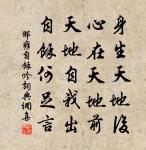 身生天地後
心在天地前
天地自我出
自餘何足言
邵雍自餘吟詞典網集